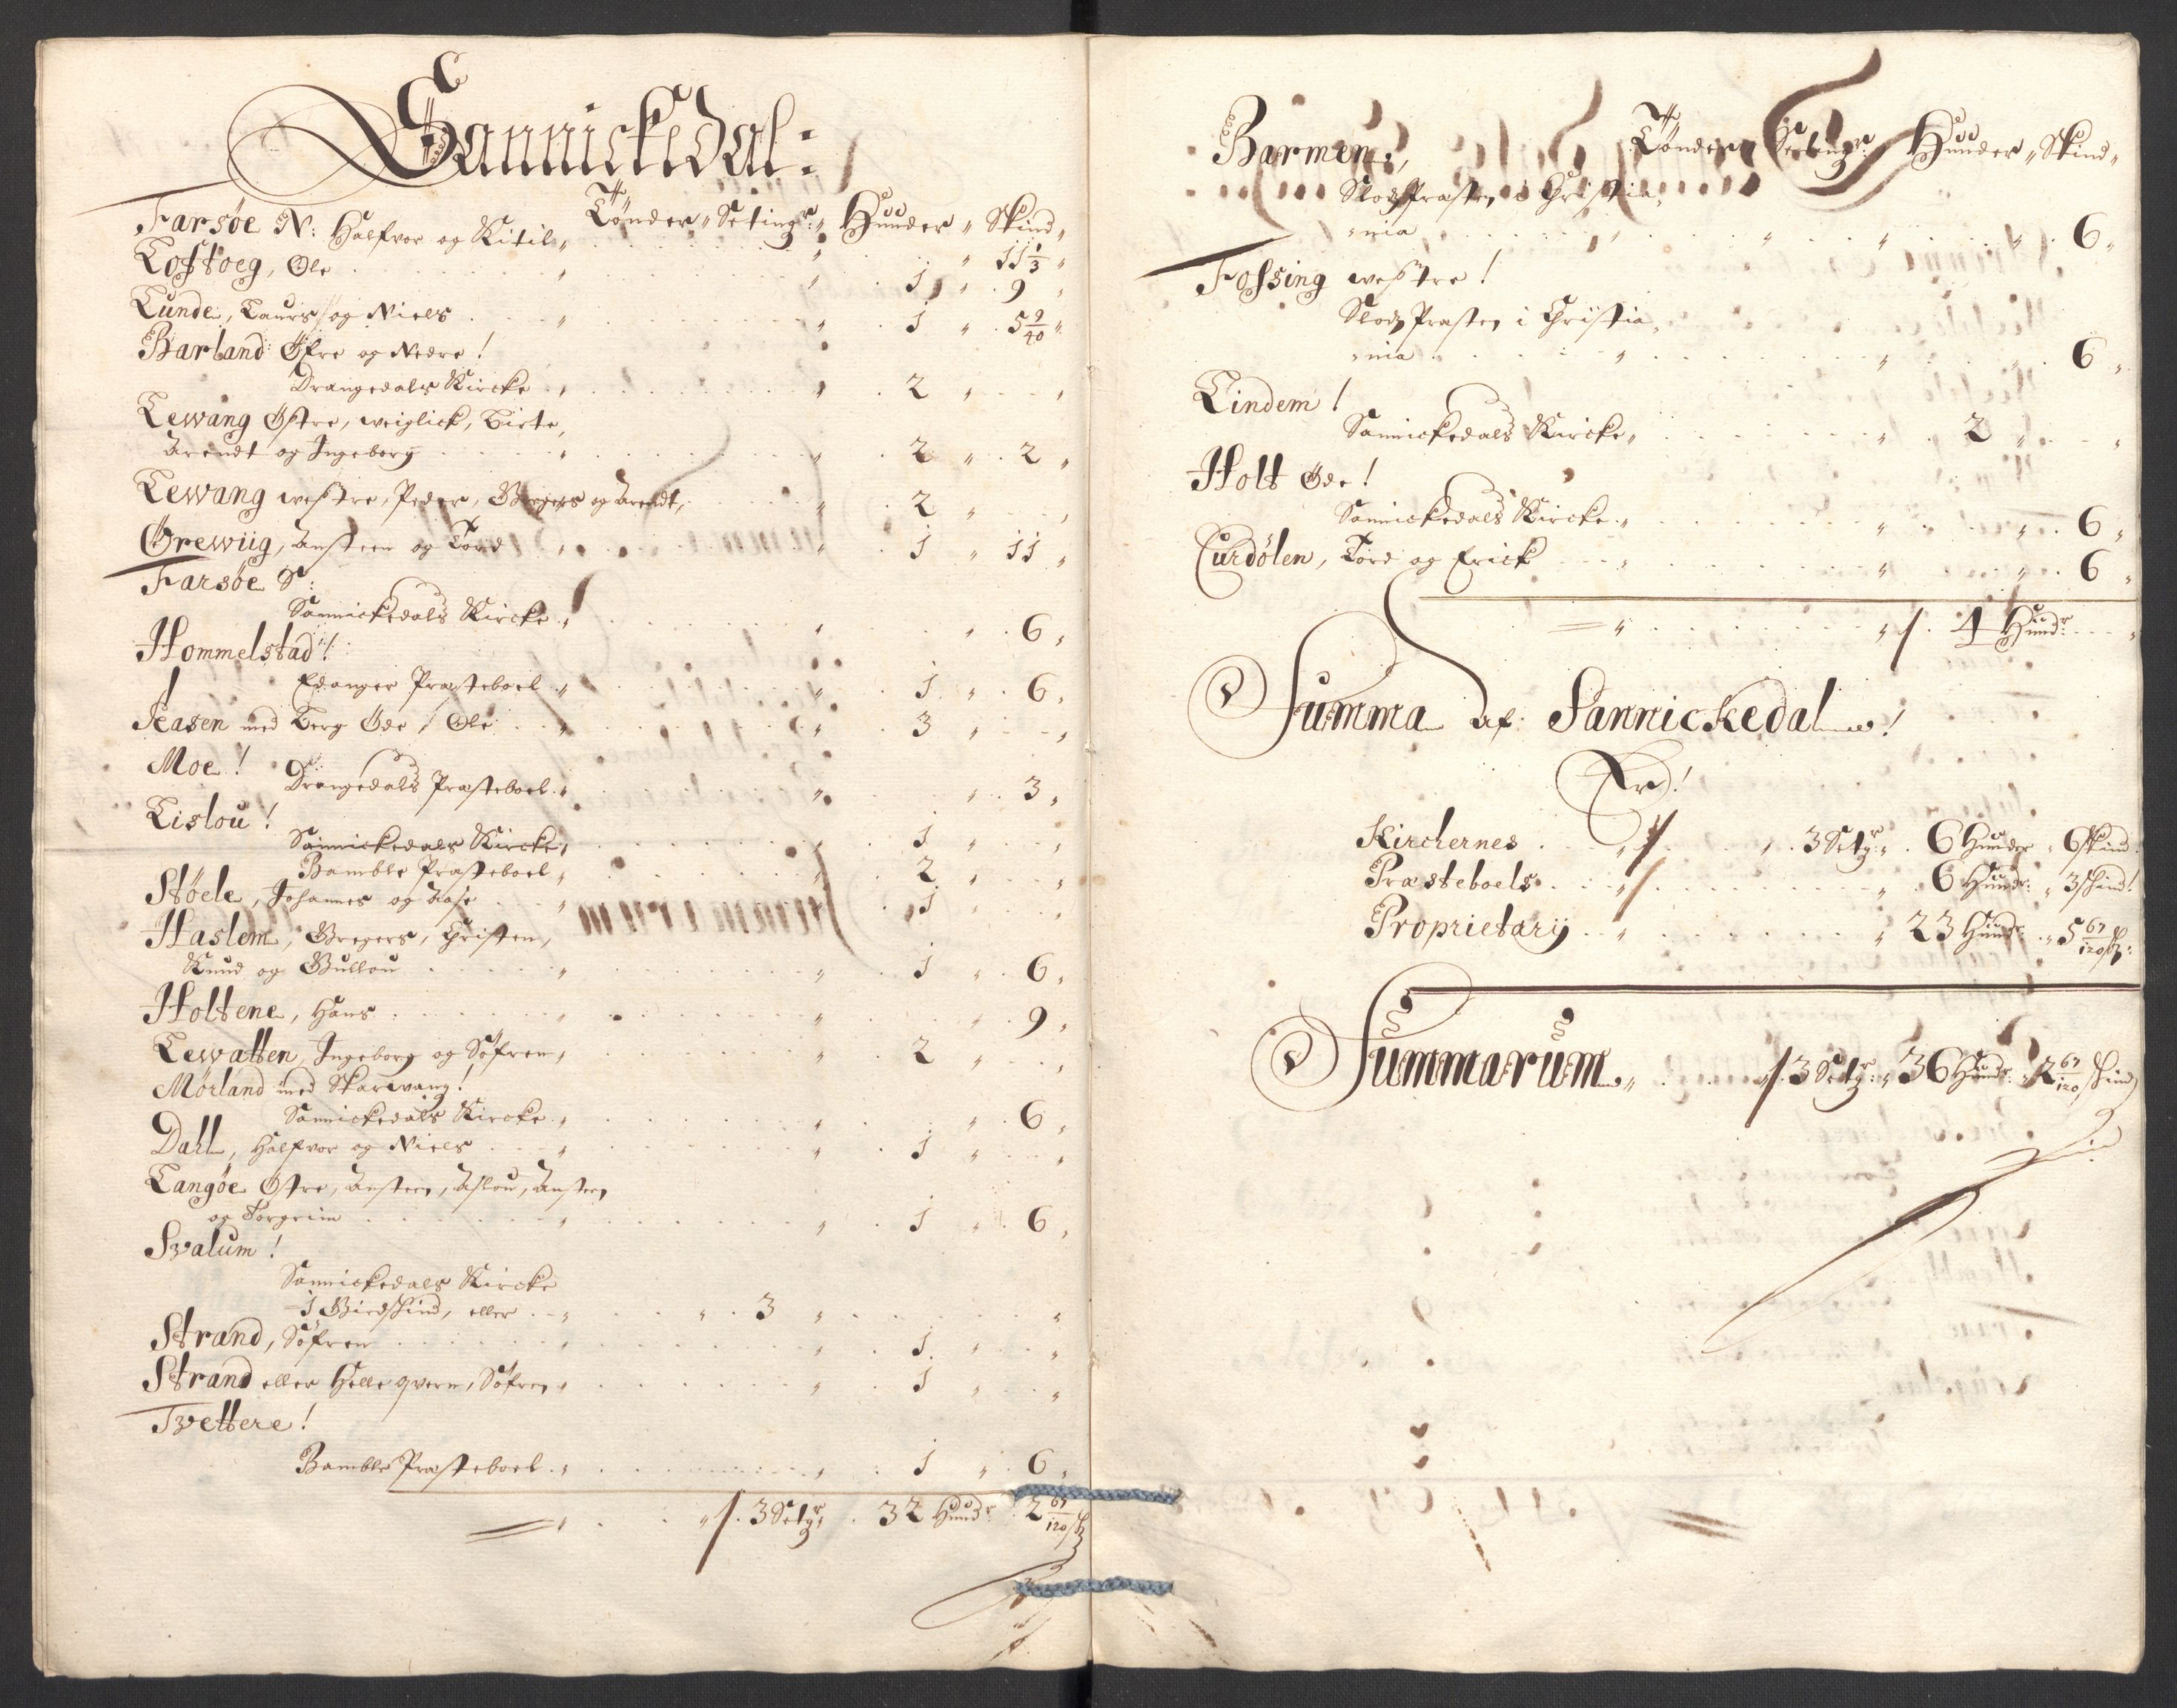 Sannickedal:
Tønder „ Setingr: „ Huuder „ Skind „
Farsøe N: Halfvor og Kitil „ „ „ 11 1/3 „
Lofthoeg, Ole „ „ 1 „ 9 „
Lunde, Laurs og Niels „ „ 1 „ 5 9/40 „
Barland Øfre og Nedre!
Drangedals Kircke „ „ 2 „ „
Lewang Østre, weiglick, Birte,
Arendt og Ingeborg „ „ 2 „ 2 „
Lewang westre, Peder, Gregers og Arendt, „ 2 „ „
Grewiig, Ansteen og Tord „ „ 1 „ 11 „
Farsøe S:
Sannickedals Kircke „ „ „ 6 „
Hommelstad!
Edanger Præsteboel „ „ 1 „ 6 „
Aasen med Berg Øde, Ole „ „ 3 „ „
Moe!
Drangedals Præsteboel „ „ „ 3 „
Lislou!
Sannickedals Kircke „ „ 1 „ „
Bamble Præsteboel „ „ 2 „ „
Støele, Johannes og Aase „ 1 „ „
Haslem, Gregers, Christen,
Knud og Gullou „ „ 1 „ 6 „
Holtene, Hans „ „ „ 9 „
Lewatten, Ingeborg og Søfren „ „ 2 „ „
Mørland med Skarwang!
Sannickedals Kircke „ „ „ 6 „
Dahl, Halfvor og Niels „ „ 1 „ „
Langøe Østre, Ansteen, Aslou, Ansteen
og Torgrim „ „ 1 „ 6 „
Svalum!
Sannickedals Kircke
1 Giedskind, eller „ „ 3 „ „
Strand, Søfren „ „ 1 „ „
Strand eller Helle qvern, Søfren „ „ 1 „ „
Tvettere!
Bamble Præsteboel „ „ 1 „ 6 „
„ „ 3 Setgr „ 32 Huudr: 2 67/120 sk
Barmen, Tønder „ Setingr: „ Huuder „ Skind „
Slodz Præsten i Christia„
„nia „ „ „ „ 6 „
Fossing westre!
Slodz Præsten i Christia„
„nia „ „ „ 6 „
Lindem!
Sannickedals Kircke „ „ 2 „ „
Holt Øde!
Sannickedals Kircke „ „ „ 6 „
Lurdølen, Tord og Erick „ „ „ 6 „
„ „ 4 Huudr: „
Summa af Sannickedal!
Er!
Kirckernes „ „ 3 Setgr: „ 6 Huuder „ 6 Skind
Præsteboels „ „ 6 Huudr: „ 3 skind!
Proprietarij „ „ 23 Huudr: „ 5 67/120 sk:
Summarum „ „ 3 Setgr: „ 36 Huudr: „ 2 67/120 skind